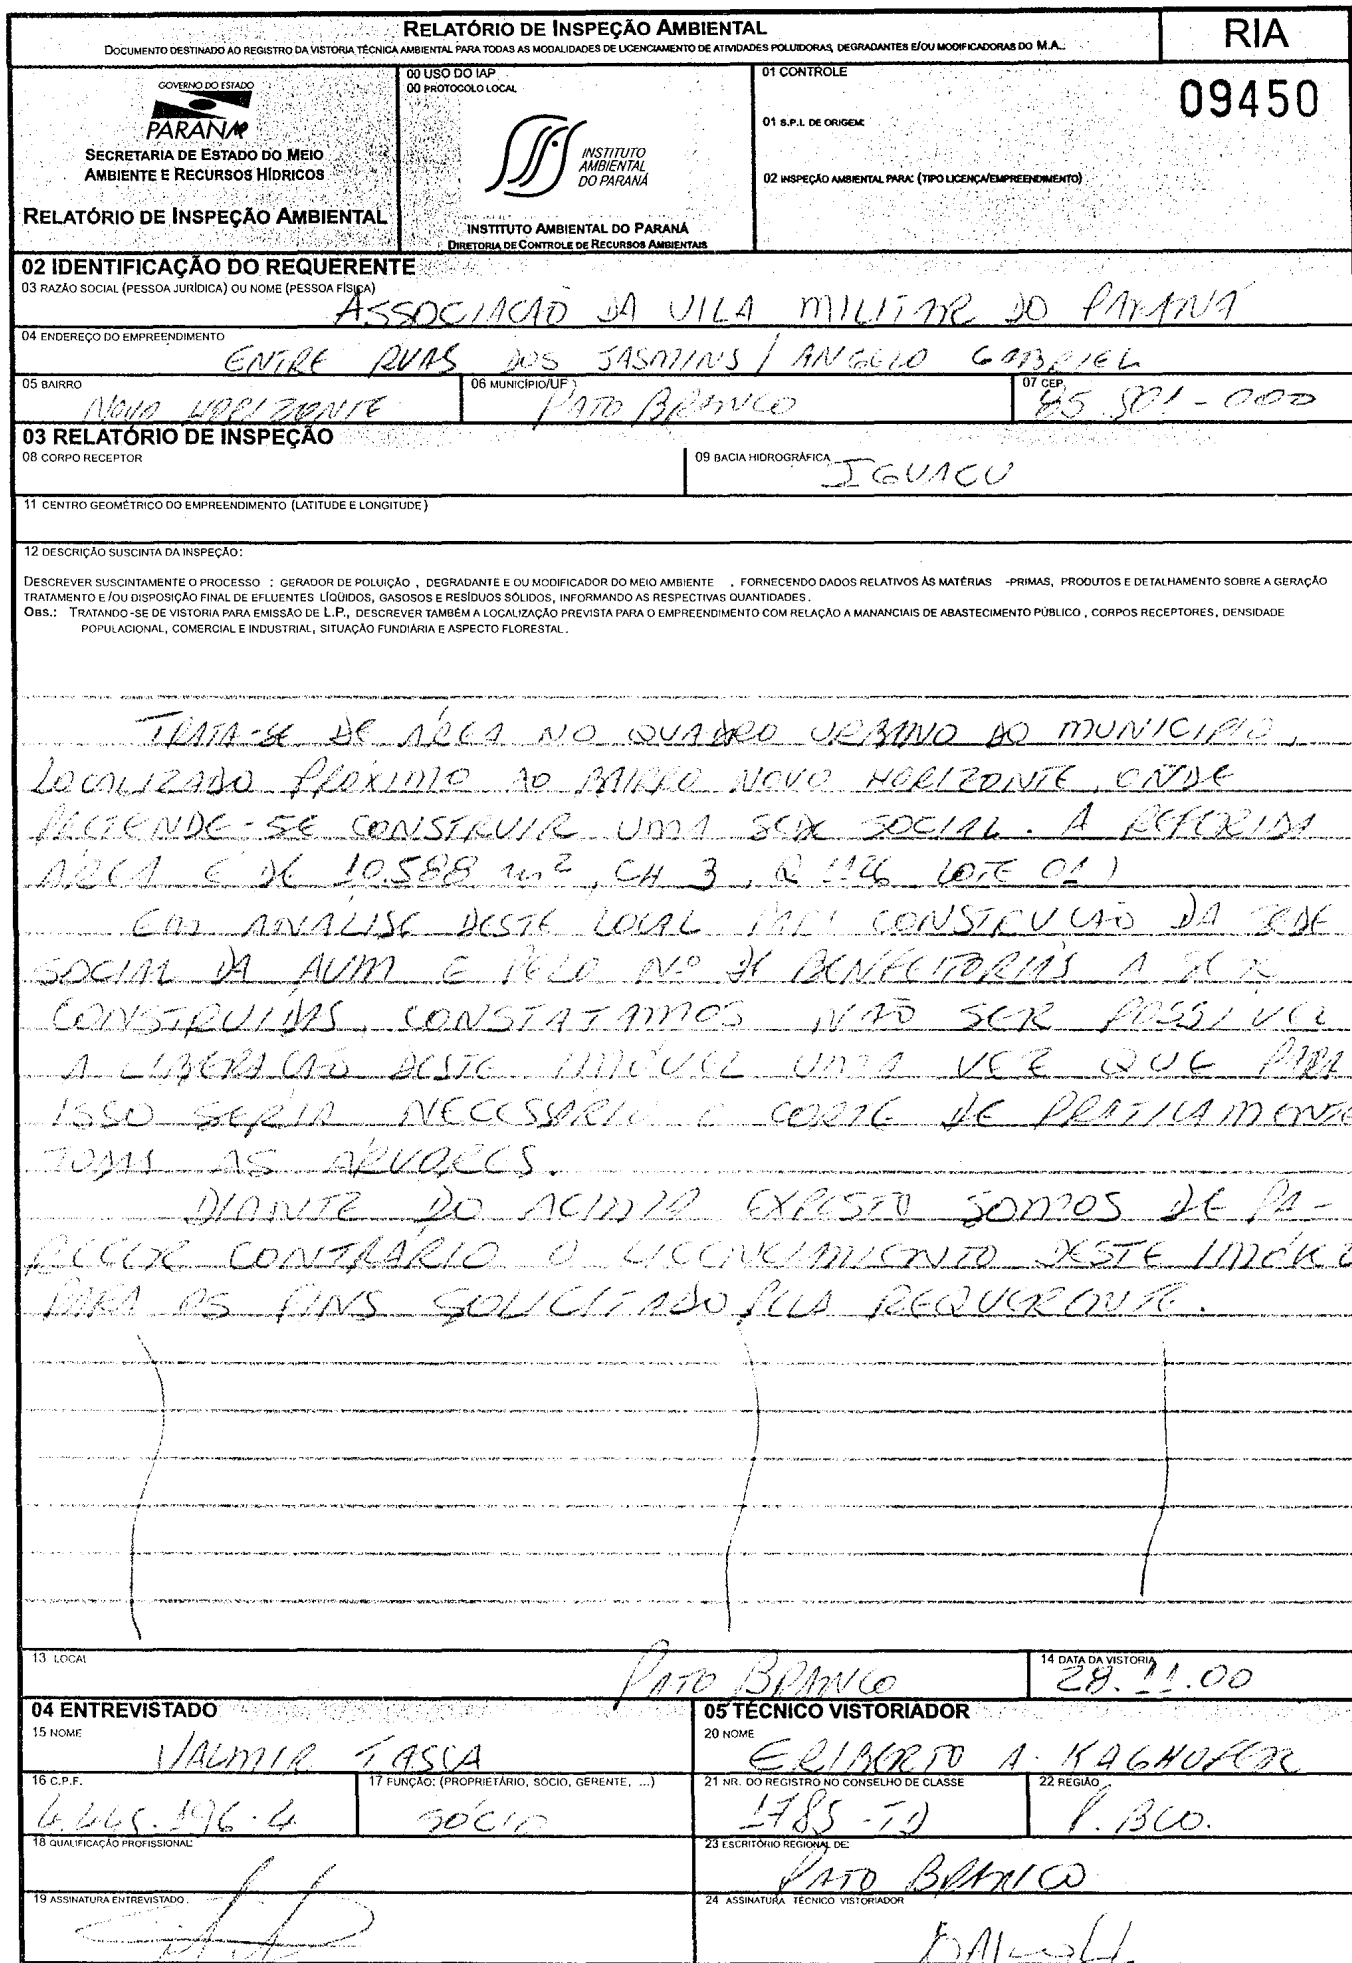 RELATÓRIO DE INSPEÇÃO AMBIENTAL
DOCUMENTO DESTINADO AO REGISTRO DA VISTORIA TÉCNICA AMBIENTAL PARA TODAS AS MODALIDADES DE LICENCIAMENTO DE ATIVIDADES POLUIDORAS, DEGRADANTES E/OU MODIFICADORAS DO M.A.:
RIA
GOVERNO DO ESTADO
PARANÁ
SECRETARIA DE ESTADO DO MEIO
AMBIENTE E RECURSOS HÍDRICOS
RELATÓRIO DE INSPEÇÃO AMBIENTAL
00 USO DO IAP
00 PROTOCOLO LOCAL
INSTITUTO
AMBIENTAL
DO PARANÁ
INSTITUTO AMBIENTAL DO PARANÁ
DIRETORIA DE CONTROLE DE RECURSOS AMBIENTAIS
01 CONTROLE
09450
01 S.P.I. DE ORIGEM:
02 INSPEÇÃO AMBIENTAL PARA: (TIPO LICENÇA/EMPREENDIMENTO)
02 IDENTIFICAÇÃO DO REQUERENTE
03 RAZÃO SOCIAL (PESSOA JURÍDICA) OU NOME (PESSOA FÍSICA)
ASSOCIACAO DA VILA MILITAR DO PARANÁ
04 ENDEREÇO DO EMPREENDIMENTO
ENTRE RUAS DOS JASMINS / ANGELO GABRIEL
05 BAIRRO
NOVO HORIZONTE
06 MUNICÍPIO/UF
PATO BRANCO
07 CEP
85.501-000
03 RELATÓRIO DE INSPEÇÃO
08 CORPO RECEPTOR
09 BACIA HIDROGRÁFICA
IGUACU
11 CENTRO GEOMÉTRICO DO EMPREENDIMENTO (LATITUDE E LONGITUDE)
12 DESCRIÇÃO SUSCINTA DA INSPEÇÃO:
DESCREVER SUSCINTAMENTE O PROCESSO : GERADOR DE POLUIÇÃO , DEGRADANTE E OU MODIFICADOR DO MEIO AMBIENTE . FORNECENDO DADOS RELATIVOS ÀS MATÉRIAS -PRIMAS, PRODUTOS E DETALHAMENTO SOBRE A GERAÇÃO
TRATAMENTO E /OU DISPOSIÇÃO FINAL DE EFLUENTES LÍQUIDOS, GASOSOS E RESÍDUOS SÓLIDOS, INFORMANDO AS RESPECTIVAS QUANTIDADES.
OBS.: TRATANDO-SE DE VISTORIA PARA EMISSÃO DE L.P., DESCREVER TAMBÉM A LOCALIZAÇÃO PREVISTA PARA O EMPREENDIMENTO COM RELAÇÃO A MANANCIAIS DE ABASTECIMENTO PÚBLICO , CORPOS RECEPTORES, DENSIDADE
POPULACIONAL, COMERCIAL E INDUSTRIAL, SITUAÇÃO FUNDIÁRIA E ASPECTO FLORESTAL.
TRATA-SE DE ÁREA NO QUADRO URBANO DO MUNICIPIO,
LOCALIZADO PRÓXIMO AO BAIRRO NOVO HORIZONTE, ONDE
PRETENDE-SE CONSTRUIR UMA SEDE SOCIAL. A REFERIDA
ÁREA É DE 10.588 m², CH 3, Q 1126 LOTE 01)
EM ANÁLISE DESTE LOCAL PARA CONSTRUCÃO DA SEDE
SOCIAL DA AVM E PELO Nº DE BENFEITORIAS A SER
CONSTRUÍDAS, CONSTATAMOS NÃO SER POSSIVEL
A LIBERACÃO DESTE IMÓVEL UMA VEZ QUE PARA
ISSO SERIA NECESSÁRIO O CORTE DE PRATICAMENTE
TODAS AS ARVORES.
DIANTE DO ACIMA EXPOSTO SOMOS DE PA-
RECER CONTRÁRIO O LICENCIAMENTO DESTE IMÓVEL
PARA OS FINS SOLICITADO PELA REQUERENTE.
13 LOCAL
PATO BRANCO
14 DATA DA VISTORIA
28.11.00
04 ENTREVISTADO
15 NOME
VALMIR TASCA
16 C.P.F.
4.445.196-4
17 FUNÇÃO: (PROPRIETÁRIO, SÓCIO, GERENTE, ...)
SÓCIO
18 QUALIFICAÇÃO PROFISSIONAL
19 ASSINATURA ENTREVISTADO
05 TÉCNICO VISTORIADOR
20 NOME
ERIBERTO A. KAGHOFER
21 NR. DO REGISTRO NO CONSELHO DE CLASSE
1785-TD
22 REGIÃO
P. BCO.
23 ESCRITÓRIO REGIONAL DE:
PATO BRANCO
24 ASSINATURA TÉCNICO VISTORIADOR